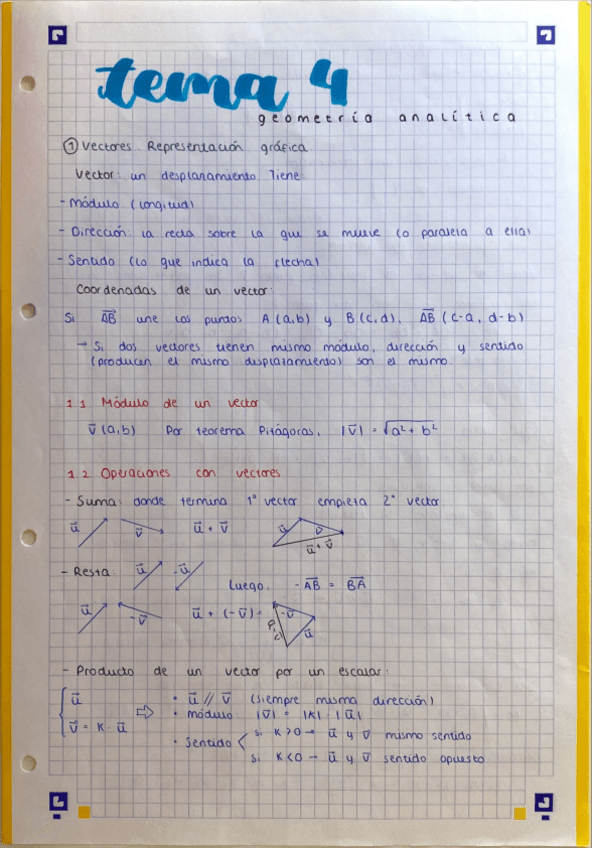 tema 4
geometría analítica
① Vectores. Representación gráfica
Vector: un desplazamiento. Tiene:
- Módulo (longitud)
- Dirección: la recta sobre la que se mueve (o paralela a ella)
- Sentido (lo que indica la flecha)
Coordenadas de un vector:
Si AB⃗ une los puntos A(a,b) y B(c,d), AB⃗ (c-a, d-b)
→ Si dos vectores tienen mismo módulo, dirección y sentido
(producen el mismo desplazamiento) son el mismo.
1.1 Módulo de un vector
v⃗ (a,b) Por teorema Pitágoras, |v⃗| = √a² + b²
1.2 Operaciones con vectores
- Suma: donde termina 1º vector empieza 2º vector
u⃗ v⃗ u⃗ + v⃗ u⃗ v⃗ u⃗ + v⃗
- Resta: u⃗ -u⃗ Luego, -AB⃗ = BA⃗
u⃗ -v⃗ u⃗ + (-v⃗) = -v⃗ u⃗
- Producto de un vector por un escalar:
{ u⃗ ⇨ • u⃗ // v⃗ (siempre misma dirección)
v⃗ = K · u⃗ • módulo: |v⃗| = |K| · |u⃗|
• Sentido < si K>0 → u⃗ y v⃗ mismo sentido
si K<0 → u⃗ y v⃗ sentido opuesto